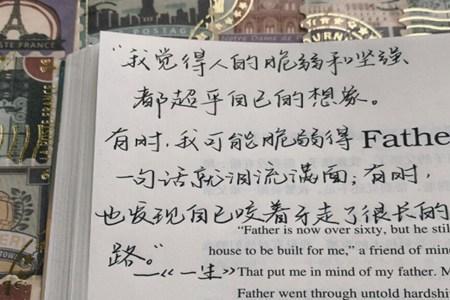 FRANCE
POSTAG
"我觉得人的脆弱和坚强
都超乎自己的想象。
有时,我可能脆弱得
Father
一句话就泪流满面;有时,
也发现自己咬着牙走了很长的
路。"
—《一生》
"Father is now over sixty, but he still
house to be built for me," a friend of mine
That put me in mind of my father. M
Father went through untold hardship